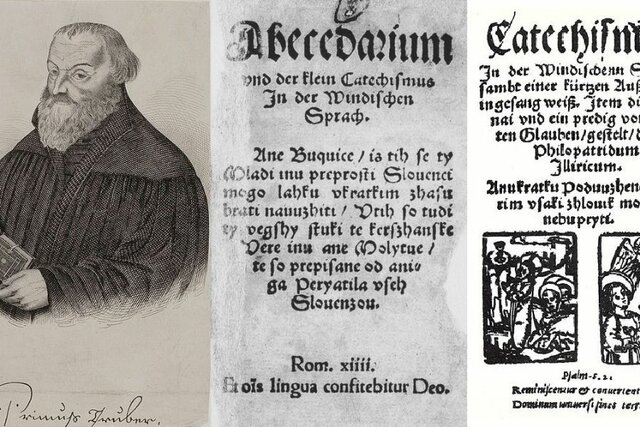 Primuß Truber,
Abecedarium
vnd der klein Catechismus
In der Windischen
Sprach.
Ane Buquice/ is tih se ty
Mladi inu preprosti Slouenci
mogo lahku vkratkim zhasu
brati nauuzhiti/ Vtih so tudi
ty vegshy stuki te kerszhanske
Vere inu ane Molytue/
te so prepisane od ani⸗
ga Peryatila vseh
Slouenzou.
Rom. xiiii.
Et oīs lingua confitebitur Deo.
Catechism
In der Windischenn S
sambt einer kürtzen Auß
in gesang weiß. Item di
nai vnd ein predig vo
ten Glauben/gestelt/d
Philopatridum
Illiricum.
Anu kratku Poduuzhen
rim vsaki zhlouik mo
nebu pryti.
Psalm.
Reminiscentur et conuerten
Dominum vniuersi fines terr